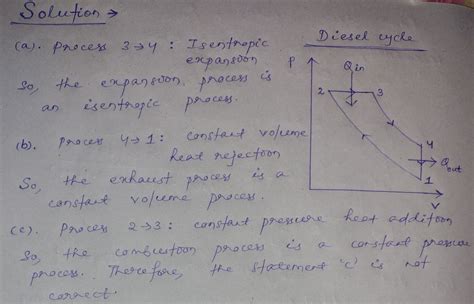 Solution →
(a). Process 3→4 : Isentropic
expansion
So, the expansion process is
an isentropic process.
(b). Process 4→1 : constant volume
heat rejection
So, the exhaust process is a
constant volume process.
(c). Process 2→3 : constant pressure heat addition
So, the combustion process is a constant pressure
process. Therefore, the statement 'c' is not
correct.
Diesel cycle
P
Qin
2
3
4
Qout
1
V